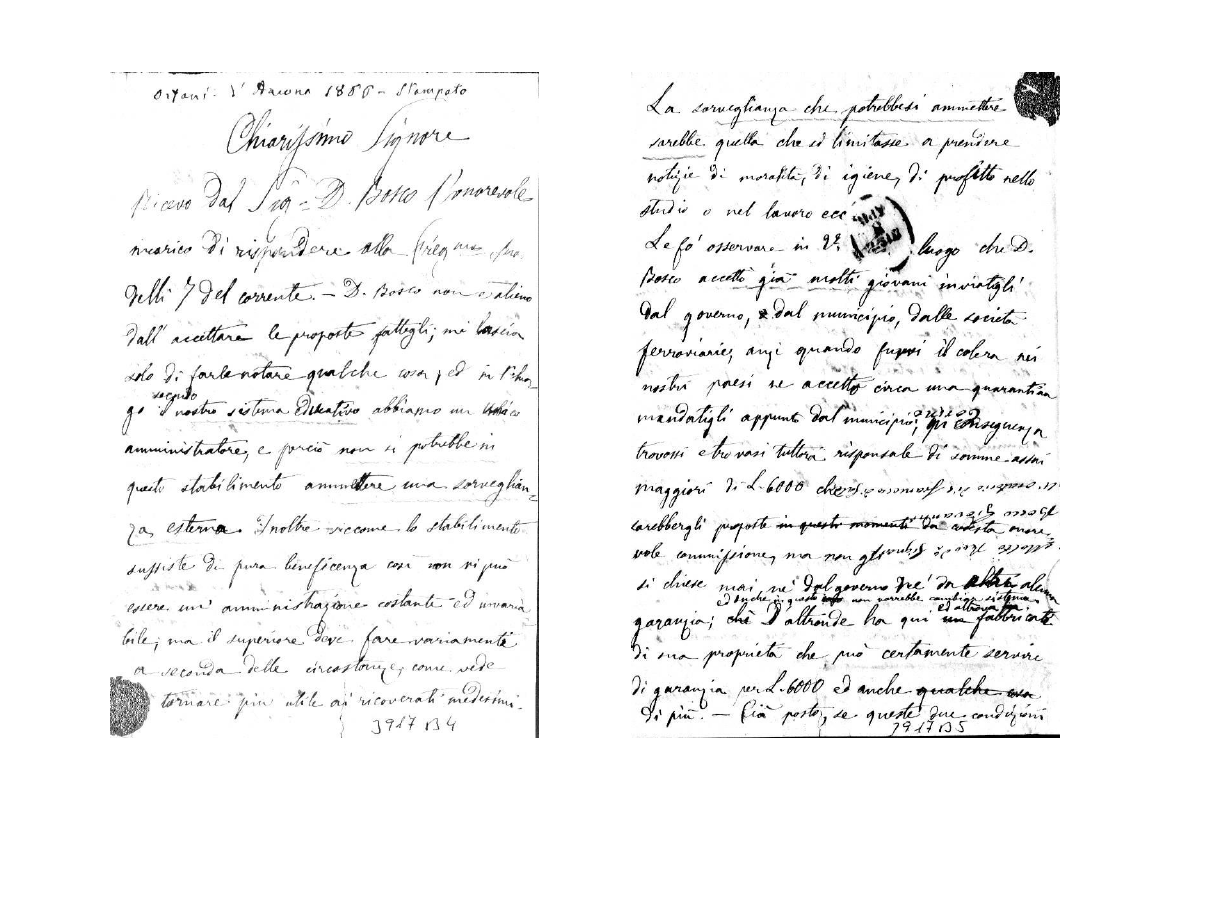 Orfani d'Ancona 1866 - Stampato
Chiarissimo Signore
Ricevo dal Sig. D. Bosco l'onorevole
incarico di rispondere alla Preg.ma Sua
delli 7 del corrente. - D. Bosco non è alieno
dall' accettare le proposte fattegli; mi lascia
solo di farle notare qualche cosa, ed in 1° luo-
secondo
go il nostro sistema educativo abbiamo un unico
amministratore, e perciò non si potrebbe in
questo stabilimento ammettere una sorveglian-
za esterna. Inoltre siccome lo stabilimento
sussiste di pura beneficenza così non vi può
essere un' amministrazione costante ed invaria
bile; ma il superiore deve fare variamente
a seconda delle circostanze, come vede
tornare più utile ai ricoverati medesimi.
3917 B4
La sorveglianza che potrebbesi ammettere
sarebbe quella che si limitasse a prendere
notizie di moralità, di igiene, di profitto nello
studio o nel lavoro ecc
Le fo' osservare in 2°. luogo che D.
Bosco accettò già molti giovani inviatigli
dal governo, dal municipio, dalle società
ferroviarie, anzi quando fuvvi il colera nei
nostri paesi ne accettò circa una quarantina
mandatigli appunto dal municipio; di conseguenza
trovossi e trovasi tuttora risponsale di somme assai
maggiori di L. 6000 che
sarebbergli proposte in questi momenti da codesta onore-
vole commissione, ma non gli
si chiese mai nè dal governo nè da altri alcuna
ed anche in questo non vorrebbe cambiar sistema
garanzia; chè D'altronde ha qui ed altrove un fabbricato
di sua proprietà che può certamente servire
di garanzia per L. 6000 ed anche qualche cosa
di più. - Già posto, se queste due condizioni
3917 B5